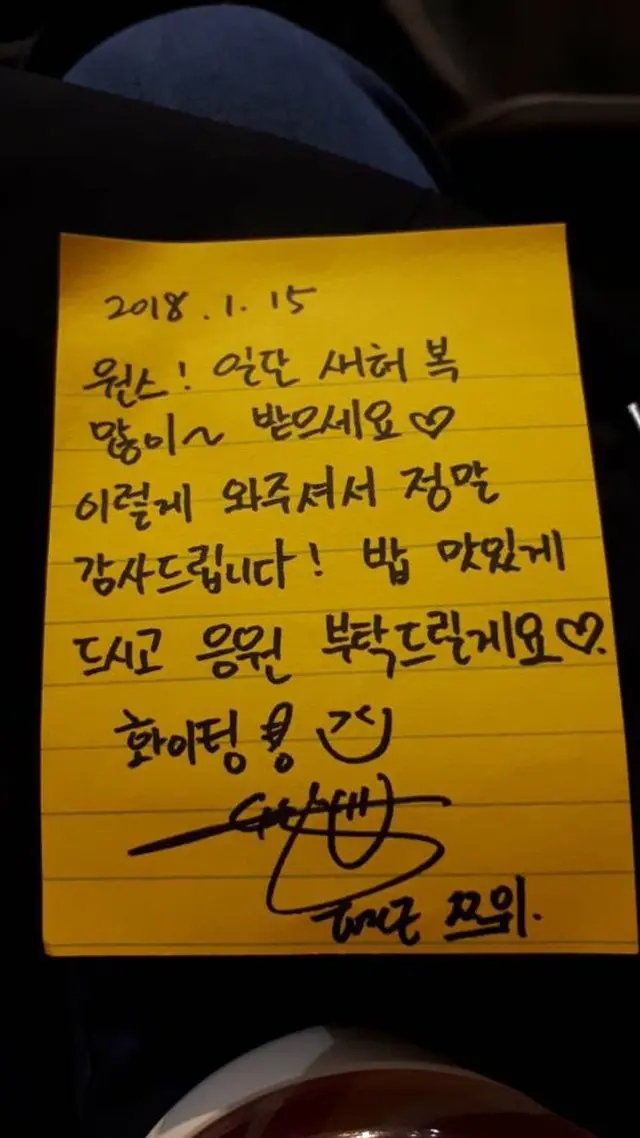 2018.1.15
원스! 일단 새해 복
많이~ 받으세요♡
이렇게 와주셔서 정말
감사드립니다! 밥 맛있게
드시고 응원 부탁드릴게요♡.
화이팅
쯔위.